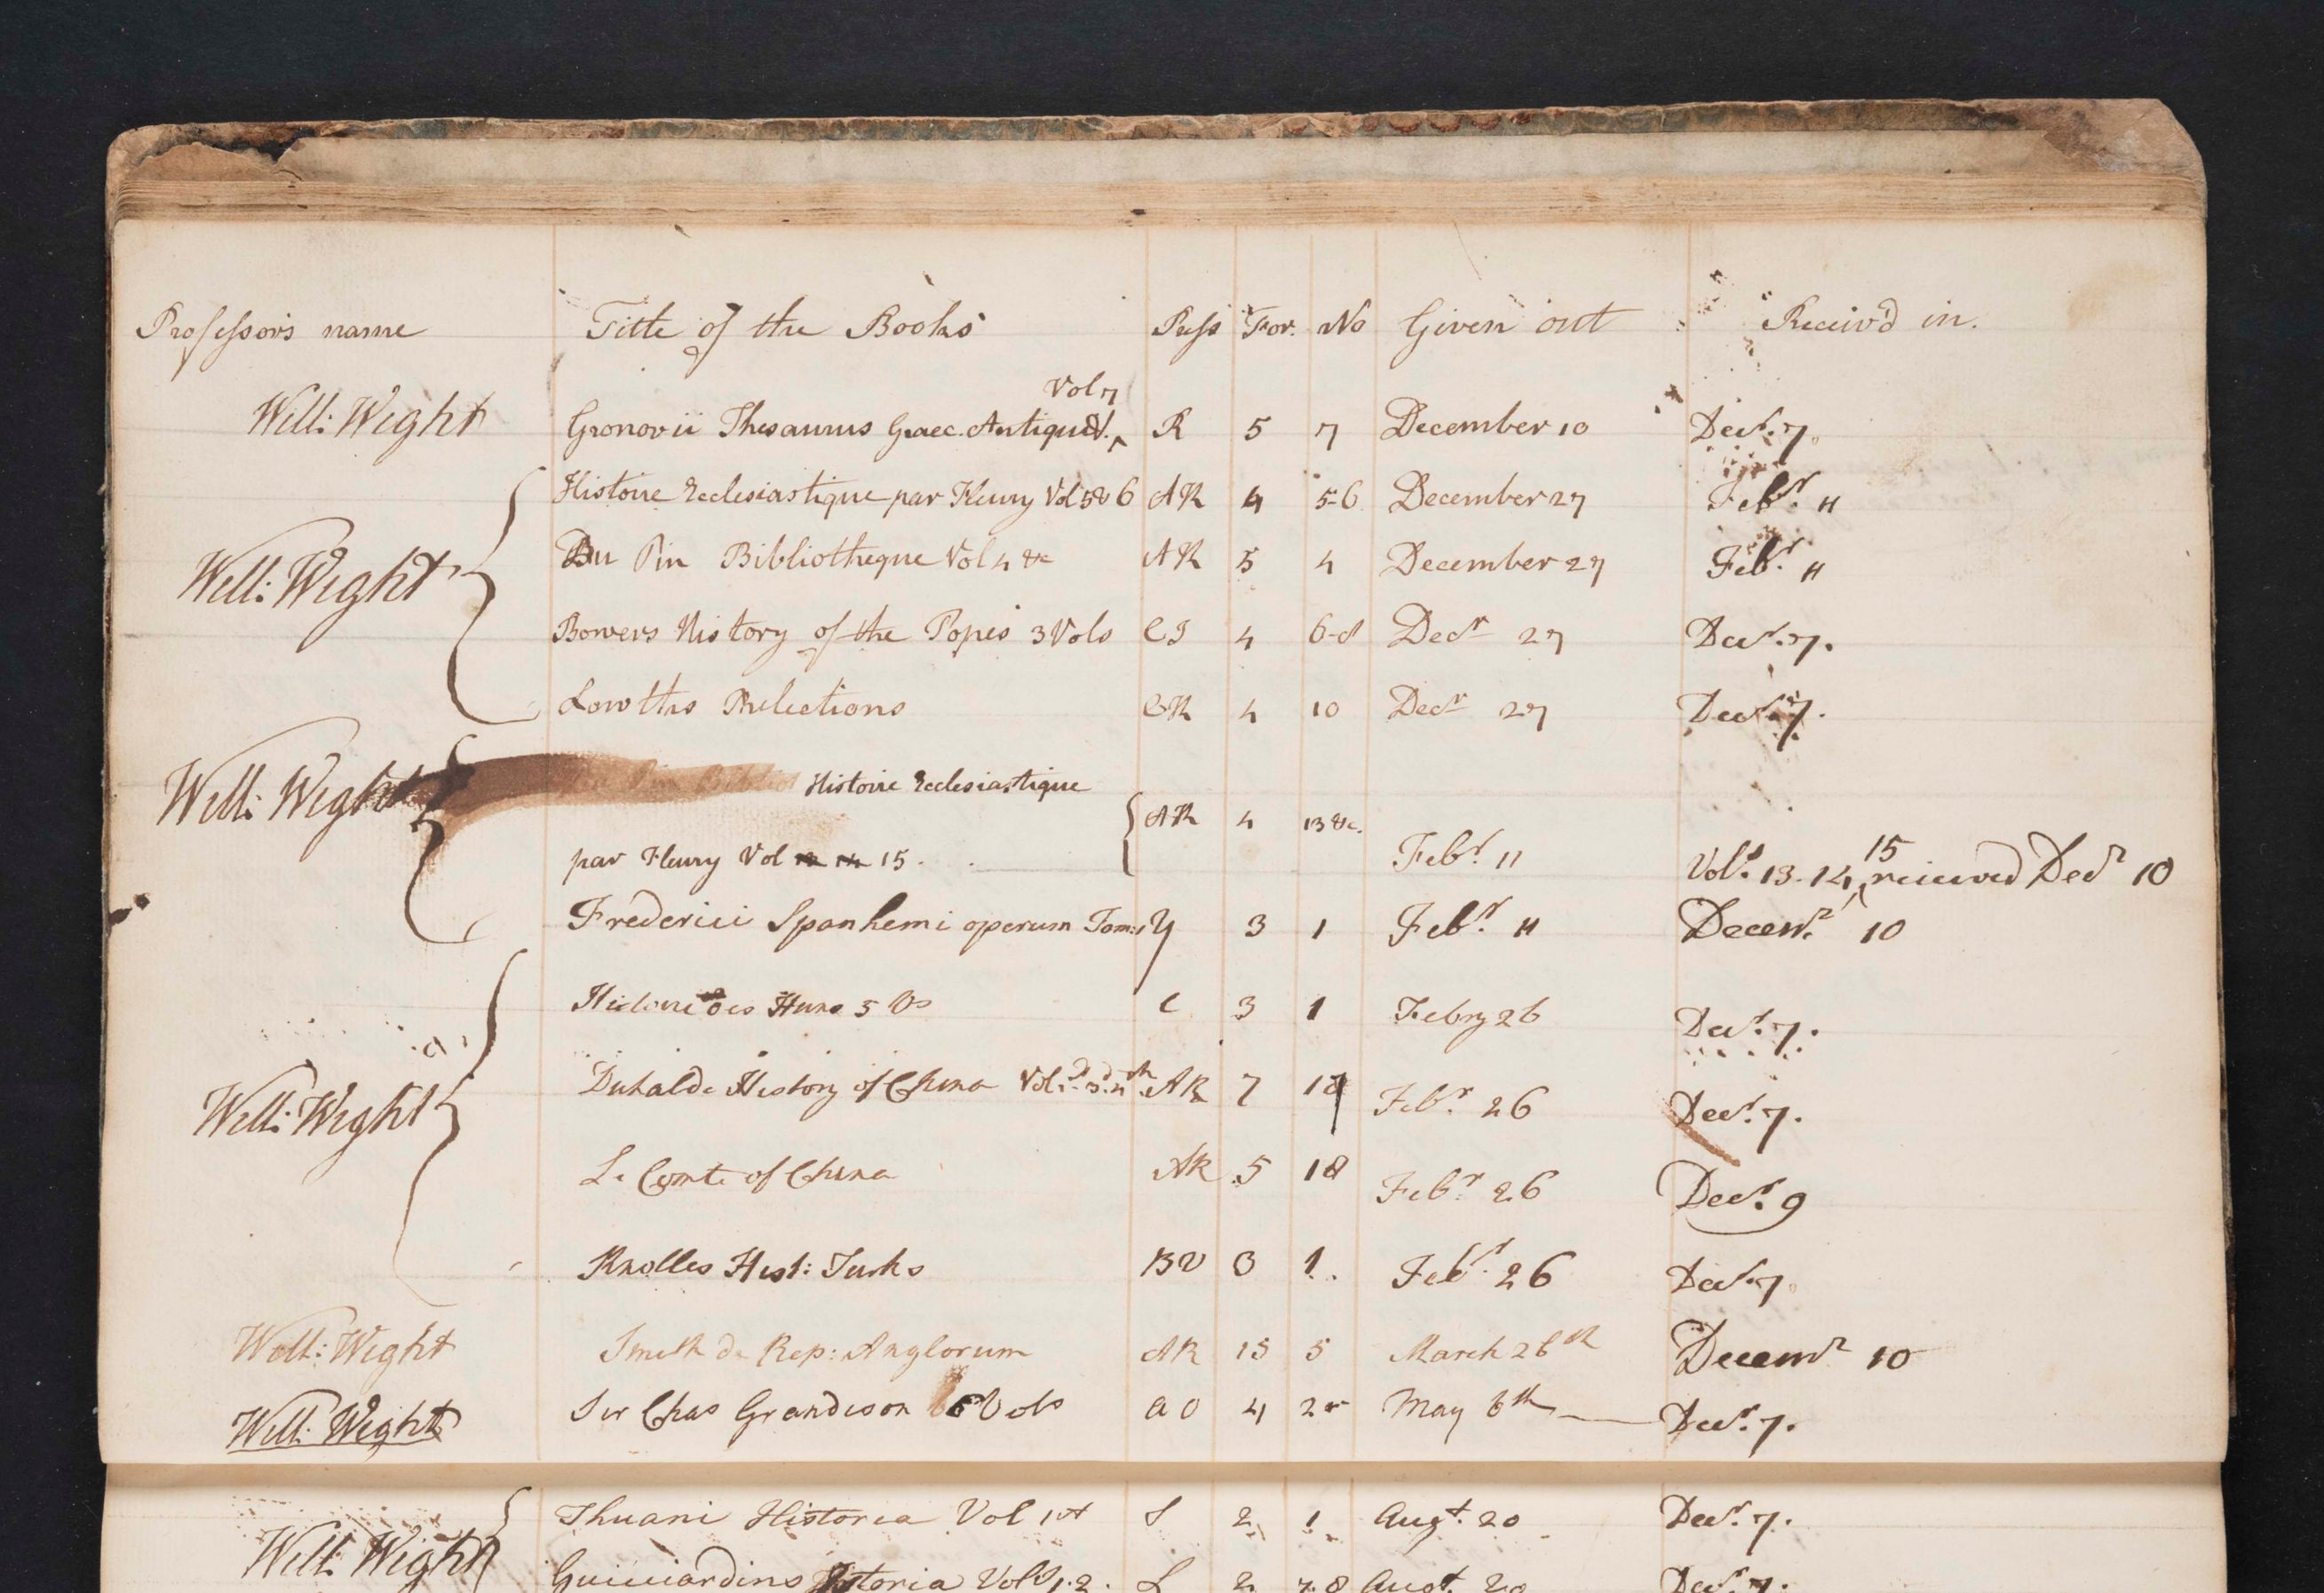 Professors name Title of the Books Press For. No Given out Receiv'd in.
Vol 7
Will: Wight Gronovii Thesaurus Graec. Antiqu. R 5 7 December 10 Decr. 7.
Histoire Ecclesiastique par Fleury Vol 5 & 6 AR 4 5-6 December 27 Febr. 11
Will: Wight Du Pin Bibliotheque Vol 4 &c AR 5 4 December 27 Febr. 11
Bowers History of the Popes 3 Vols CI 4 6-8 Decr 27 Decr. 7.
Lowths Prelections BR 4 10 Decr 27 Decr. 7.
Will: Wight Du Pin Biblio Histoire Ecclesiastique
AR 4 13 &c.
par Fleury Vol 15. Febr. 11 Vols. 13. 14, 15 received Decr 10
Frederici Spanhemi operum Tom: 1 Y 3 1 Febr. 11 Decemr. 10
Histoire des Huns 5 Vs C 3 1 Febry 26 Decr. 7.
Will: Wight Duhalde History of China Vol 2d. 3d. 4th. AR 7 Febr. 26 Decr. 7.
Le Comte of China AR 5 18 Febr. 26 Decr. 9
Knolles Hist: Turks BV 3 1. Febr. 26 Decr. 7.
Will: Wight Smith de Rep: Anglorum AR 15 5 March 26th Decemr 10
Will: Wight Sir Chas Grandison 6 Vols AO 4 May 6th Decr. 7.
Thuani Historia Vol 1st S 2 1 Augt. 20 Decr. 7.
Will: Wight
Guicciardins Istoria Vols 1. 2. L 2 7.8 Augt. 20 Decr. 7.